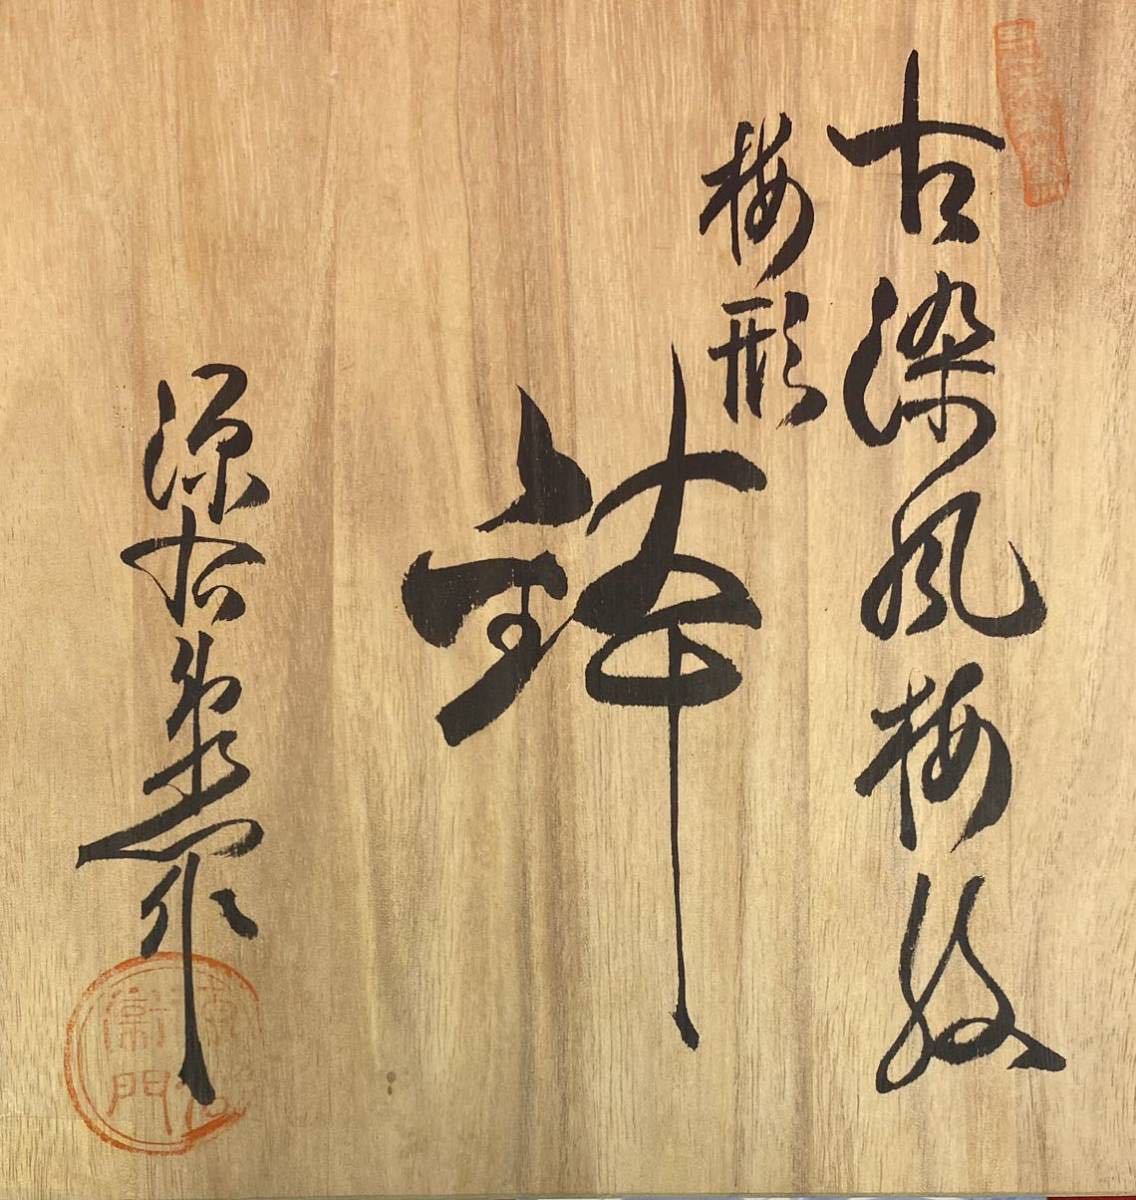 古染風梅紋
梅形
鉢
源右衛門作